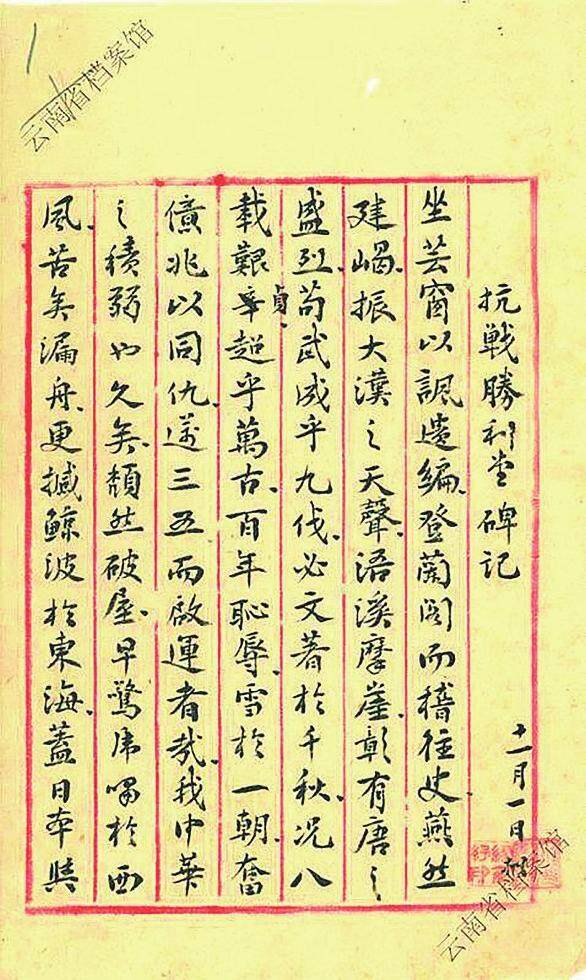 云南省档案馆
抗戰勝利堂碑記
十一月一日
坐芸窗以諷遺編、登蘭閣而稽往史、燕然
建碣、振大漢之天聲、浯溪摩崖、彰有唐之
盛烈、苟武威乎九伐、必文著於千秋、况八
載艱辛貞、超乎萬古、百年恥辱、雪於一朝、奮
億兆以同仇、三五而啟運者哉、我中華
之積弱也久矣、頹然破屋、早驚虎嘯於西
風、苦矣漏舟、更撼鯨波於東海、蓋日本與
云南省档案馆